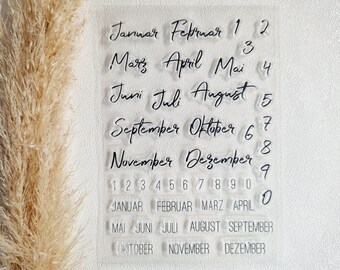 Januar Februar 1 2
3
März April Mai 4
Juni Juli August 5
September Oktober 6 7
8
November Dezember 9
1 2 3 4 5 6 7 8 9 0 0
JANUAR FEBRUAR MÄRZ APRIL
MAI JUNI JULI AUGUST SEPTEMBER
OKTOBER NOVEMBER DEZEMBER